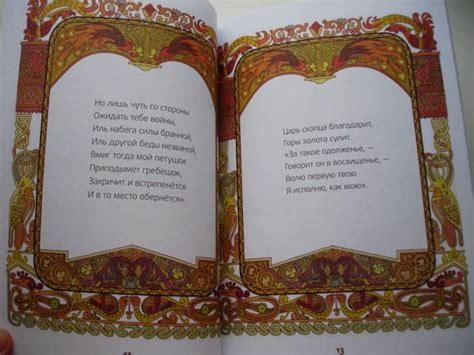 Но лишь чуть со стороны
Ожидать тебе войны,
Иль набега силы бранной,
Иль другой беды незваной,
Вмиг тогда мой петушок
Приподымет гребешок,
Закричит и встрепенётся
И в то место обернётся».
Царь скопца благодарит,
Горы золота сулит.
«За такое одолженье, –
Говорит он в восхищенье, –
Волю первую твою
Я исполню, как мою».
13